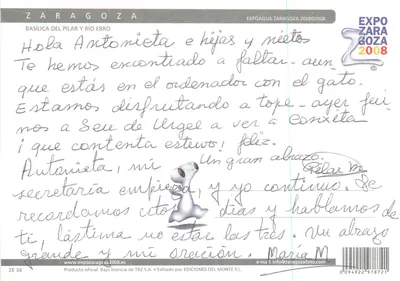 ZARAGOZA
BASÍLICA DEL PILAR Y RÍO EBRO
EXPOAGUA ZARAGOZA 2008
EXPO
ZARA
GOZA
2008
Hola Antonieta e hijas y nietos
Te hemos encontrado a faltar. aun
que estás en el ordenador con el gato.
Estamos disfrutando a tope - ayer fui
mos a Seu de Urgel a ver a Conxita
¡que contenta estuvo! feliz.
Un gran abrazo. Pilar M.
Antonieta, mi
secretaria empieza, y yo continuo. Te
recordamos estos días y hablamos de
ti, lástima no estar las tres. Un abrazo
grande y mi oración. María M
www.expozaragoza2008.es
ZE 34
Producto oficial. Bajo licencia de TBZ S.A. • Editado por EDICIONES DEL MONTE S.L.